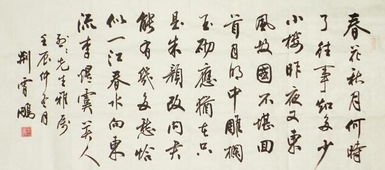 春花秋月何時
了往事知多少
小樓昨夜又東
風故國不堪回
首月明中雕欄
玉砌應猶在只
是朱顏改問君
能有幾多愁恰
似一江春水向東
流李煜虞美人
先生雅屬
壬辰仲月
荆霄鹏